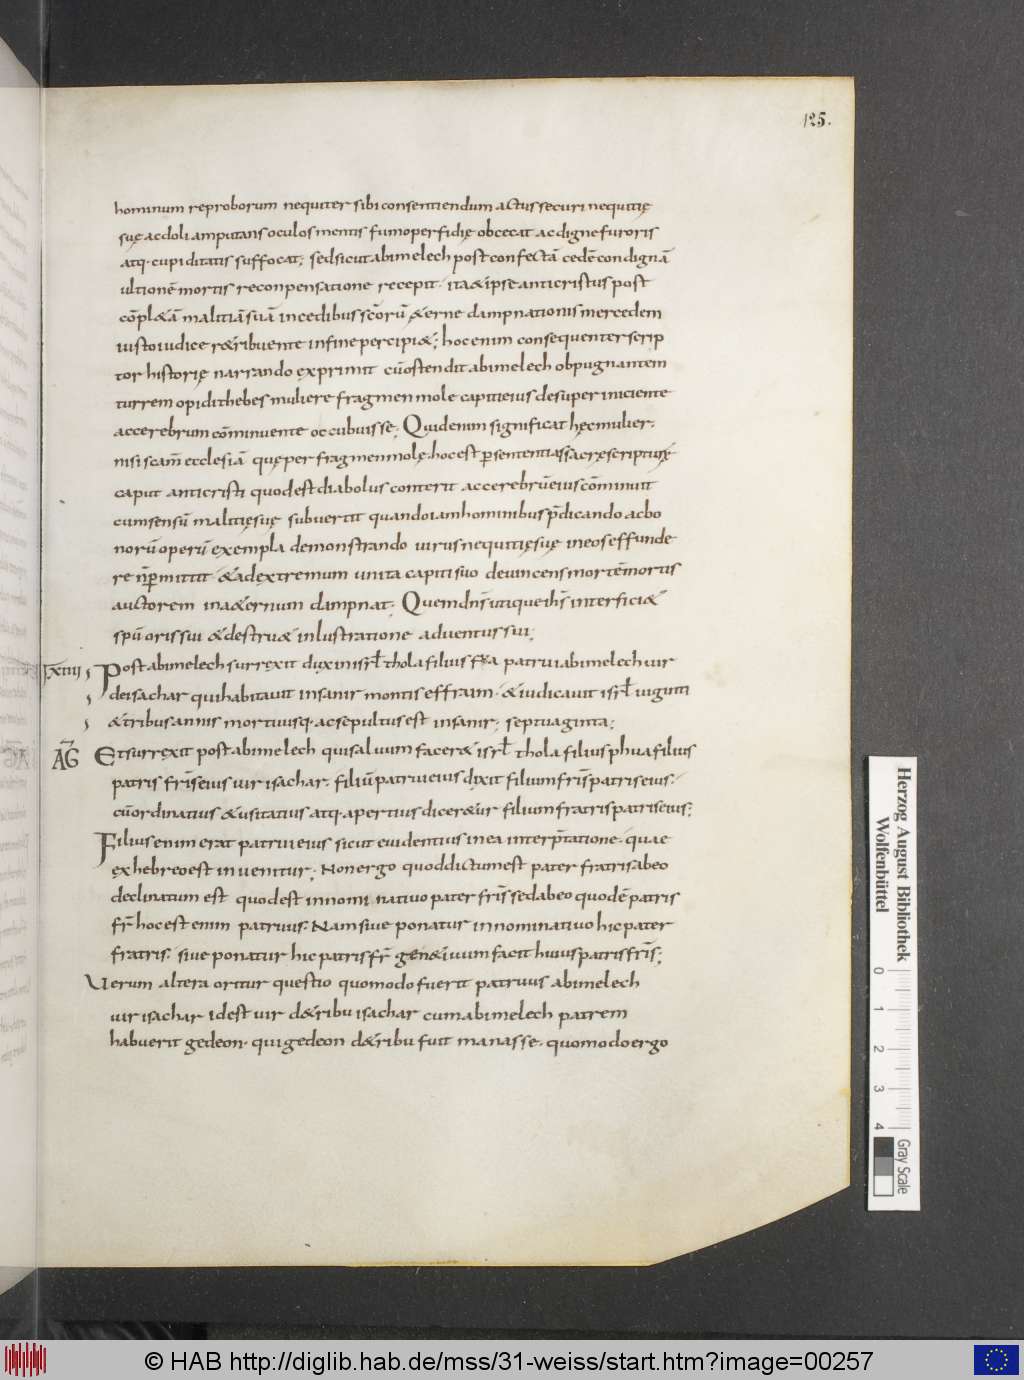 125.
hominum reproborum nequiter sibi consentiendum actus securi nequitię
suę ac doli amputans oculos mentis fumo perfidię obcecat ac digne furoris
atq· cupiditatis suffocat; sed sicut abimelech post confectā cedē condignā
ultionē mortis reconpensatione recepit· ita & ipse anticristus post
cōpl&ā malitiā suā in cedibus scōrū &erne dampnationis mercedem
iusto iudice r&ribuente in fine percipi&; hoc enim consequenter scrip
tor historię narrando exprimit cū ostendit abimelech obpugnantem
turrem opidi thebes muliere fragmen mole capiti eius desuper iniciente
ac cerebrum cōminuente occubuisse; Quid enim significat hęc mulier;
nisi scām ecclesiā quę per fragmen molę· hoc est p sententias sacrę scripturę
caput anticristi quod est diabolus conterit ac cerebrū eius cōminuit
cum sensū malitię suę subvertit quando iam hominibus p̄dicando ac bo
norū operū exempla demonstrando virus nequitię suę in eos effunde
re n̄ pmittit & ad extremum unita capiti suo devincens mortē mortis
auctorem in a&ernum dampnat; Quem dn̄s utique ih̄s interfici&
spū oris sui & destru& inlustratione adventus sui;
lxiiii Post abimelech surrexit dux in isrł thola filius fr̄a patrui abimelech vir
de isachar qui habitavit in sanir montis effraim· & iudicavit isrł viginti
& tribus annis mortuusq· ac sepultus est in sanir; septuaginta;
AG Et surrexit post abimelech qui salvum facer& isrł thola filius phua filius
patris frīs eius vir isachar· filiū patrui eius dixit filium frīs patris eius·
cū ordinatius & usitatius atq· apertius dicer&ur filium fratris patris eius;
Filius enim erat patrui eius sicut evidentius in ea interp̄tatione· quae
ex hebreo est invenitur; Non ergo quod dictum est pater fratris ab eo
declinatum est quod est in nominativo pater frīs sed ab eo quod ē patris
fr̄ hoc est enim patruus· Nam sive ponatur in nominativo hic pater
fratris· sive ponatur hic patris fr̄ gen&ivum facit huius patris frīs;
Verum altera oritur questio quomodo fuerit patruus abimelech
vir isachar id est vir d&ribu isachar cum abimelech patrem
habuerit gedeon· qui gedeon d&ribu fuit manasse· quomodo ergo
Herzog August Bibliothek
Wolfenbüttel
0 1 2 3 4
Gray Scale
© HAB http://diglib.hab.de/mss/31-weiss/start.htm?image=00257